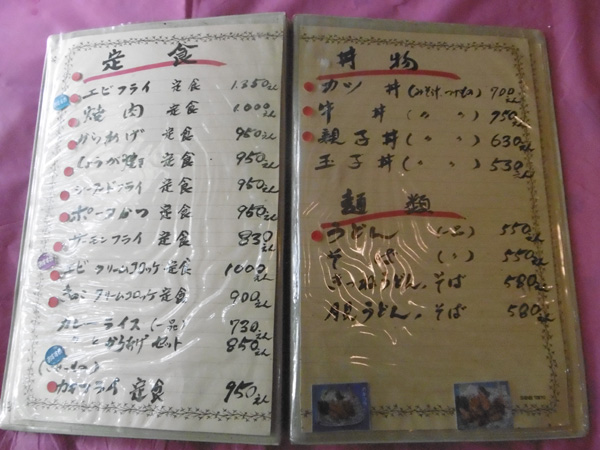 定食
エビフライ 定食 1.350えん
焼肉 定食 1.000えん
からあげ 定食 950えん
しょうが焼 定食 950えん
シーフードフライ 定食 950えん
ポークかつ 定食 950えん
サーモンフライ 定食 830えん
エビクリームコロッケ定食 1000えん
クリームコロッケ定食 900えん
カレーライス(一品) 730えん
〃とからあげセット 850えん
カキフライ 定食 950えん
丼物
カツ丼(みそ汁、つけもの) 900えん
牛丼(〃 〃) 750えん
親子丼(〃 〃) 630えん
玉子丼(〃 〃) 530えん
麺類
うどん (一品) 550えん
そば (〃) 550えん
きつねうどん、そば 580えん
月見うどん、そば 580えん